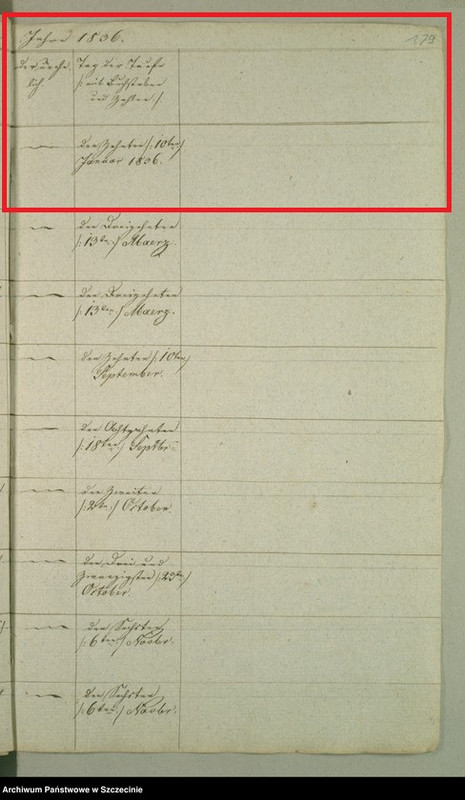 Jahre 1836.
179
Tag der Taufe
/: mit Buchstaben
und Zahlen./
den Zehnten /: 10ten/
Januar 1836.
den Dreizehnten
/: 13ten./ Maerz.
den Dreizehnten
/: 13ten./ Maerz.
den Zehnten /: 10ten/
September.
den Achtzehnten
/: 18ten/ Septbr
den Zweiten
/: 2ten./ October.
den Drei und
Zwanzigsten /: 23ten/
October.
den Sechsten
/: 6ten/ Novbr.
den Sechsten
/: 6ten/ Novbr.
Archiwum Państwowe w Szczecinie